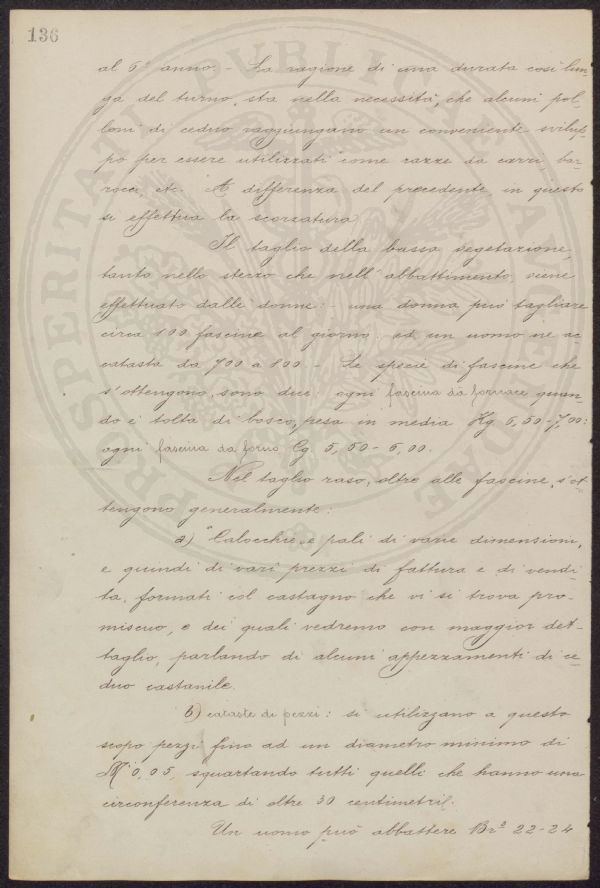 136
al 6° anno. - La ragione di una durata così lun-
ga del turno, sta nella necessità, che alcuni pol-
loni di ceduo raggiungano un conveniente svilup-
po per essere utilizzati come razze da carri, bar-
rocci, etc. A differenza del precedente, in questo
si effettua la scorzatura.
Il taglio della bassa vegetazione,
tanto nello sterzo che nell'abbattimento, viene
effettuato dalle donne: - una donna può tagliare
circa 100 fascine al giorno, ed un uomo ne ac-
catasta da 700 a 800. - Le specie di fascine che
s'ottengono, sono due: ogni fascina da fornace quan-
do è tolta di bosco, pesa in media Kg 6,50-7,00:
ogni fascina da forno Cg. 5,50-6,00.
Nel taglio raso, oltre alle fascine, s'ot-
tengono generalmente:
a) "Calocchie" e pali di varie dimensioni,
e quindi di vari prezzi di fattura e di vendi-
ta, formati col castagno che vi si trova pro-
miscuo, e dei quali vedremo con maggior det-
taglio, parlando di alcuni appezzamenti di ce-
duo castanile.
b) cataste di pezzi: si utilizzano a questo
scopo pezzi fino ad un diametro minimo di
M 0,05, squartando tutti quelli che hanno una
circonferenza di oltre 30 centimetri.
Un uomo può abbattere Br² 22-24
PROSPERITATI PVBLICAE AVGENDAE